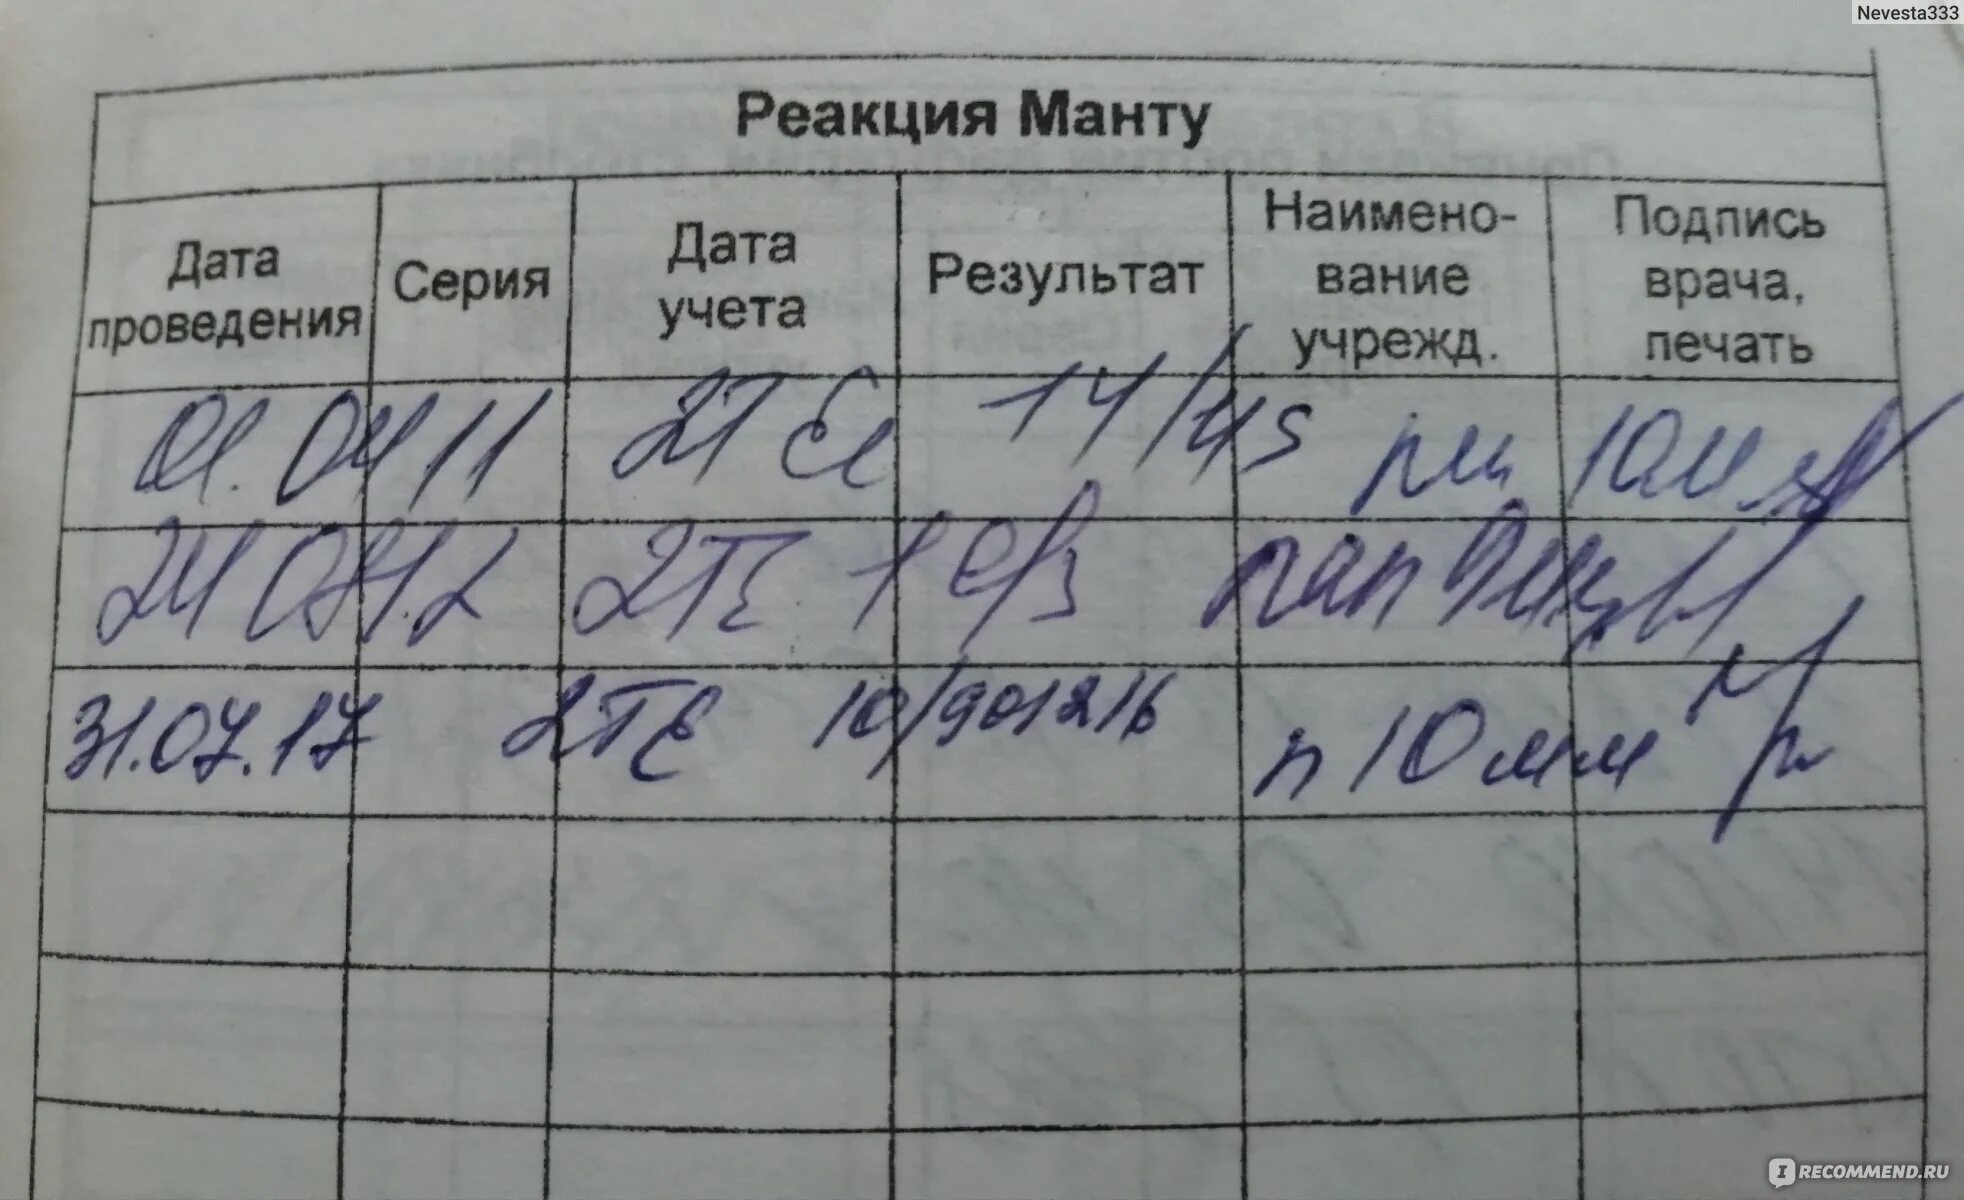 Nevesta333
Реакция Манту
Дата проведения
Серия
Дата учета
Результат
Наимено-
вание
учрежд.
Подпись
врача,
печать
01.04.11 2ТЕ 14/145 10мм
2ТЕ
31.07.17 2ТЕ 10/901216 п 10мм
IRECOMMEND.RU